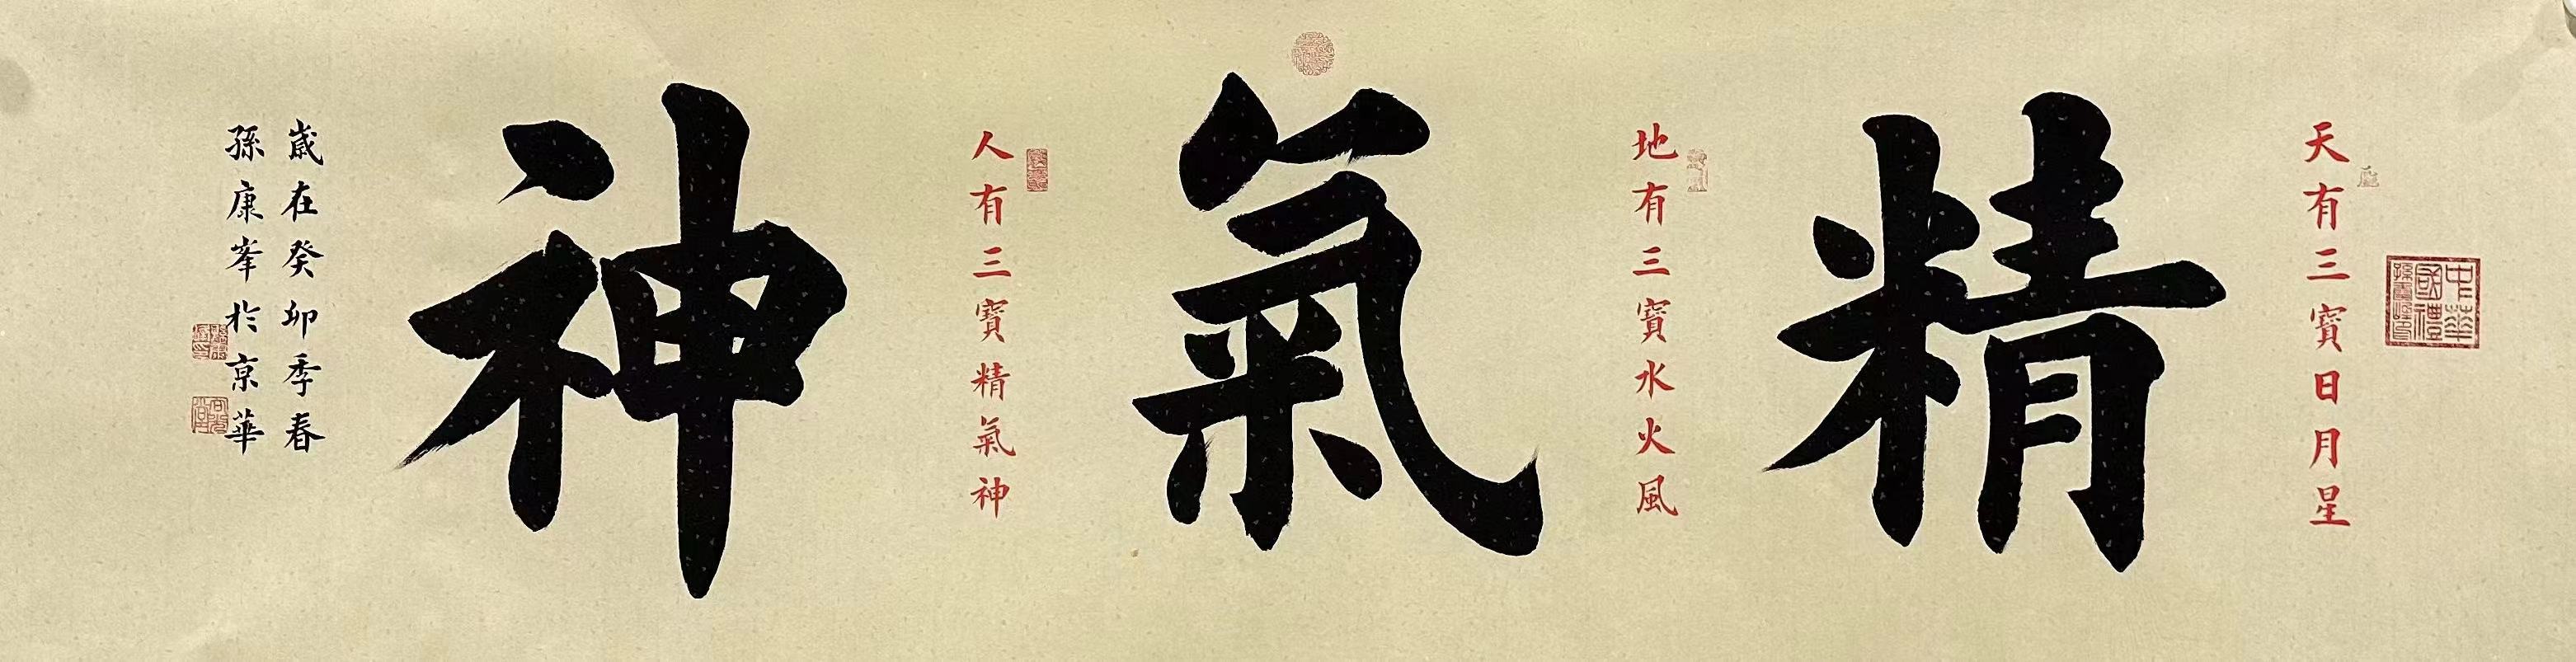 天有三寶日月星
中華國禮
精
地有三寶水火風
氣
人有三寶精氣神
神
歲在癸卯季春
孫康峯於京華